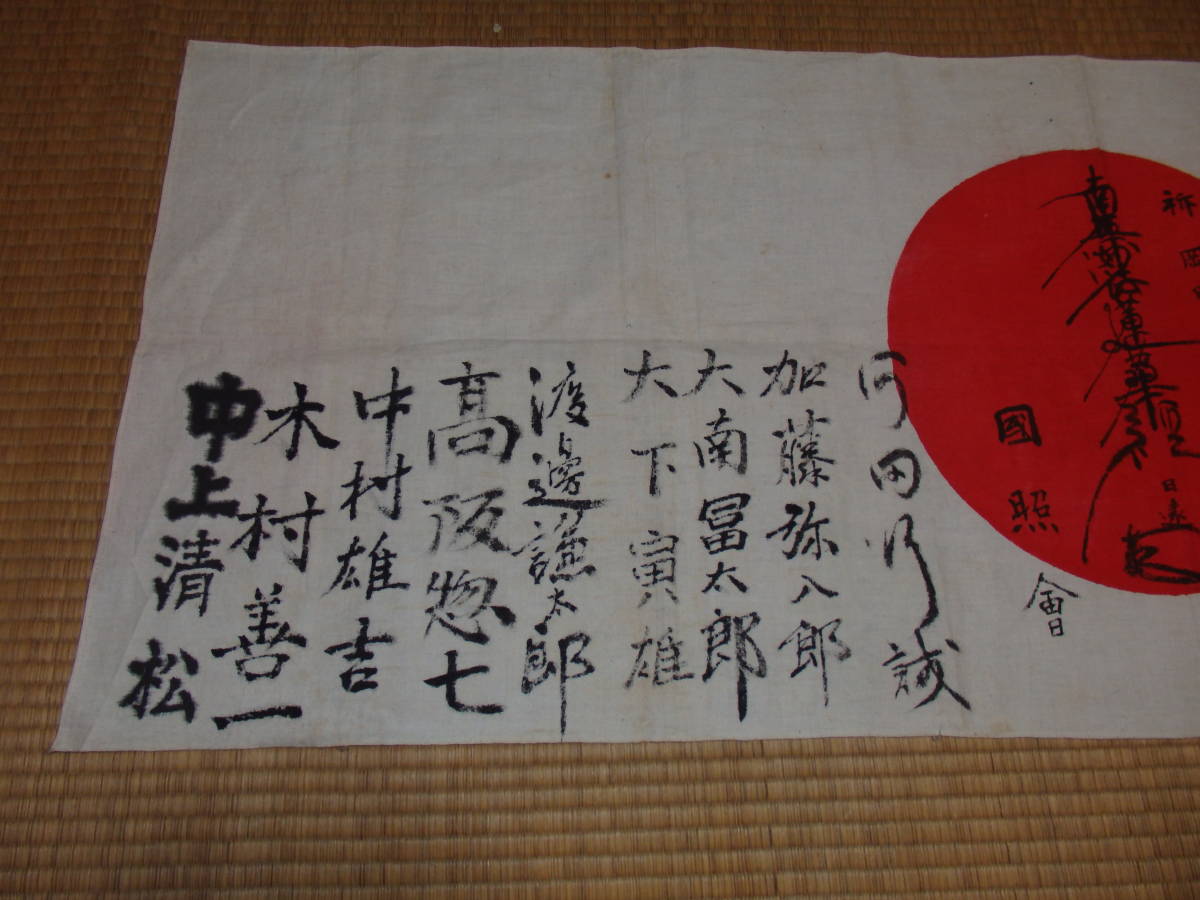 祈
南無妙法蓮華経
日遠
國照
會
河田行誠
加藤弥八郎
大南冨太郎
大下寅雄
渡邊謙太郎
高阪惣七
中村雄吉
木村善一
中上清松